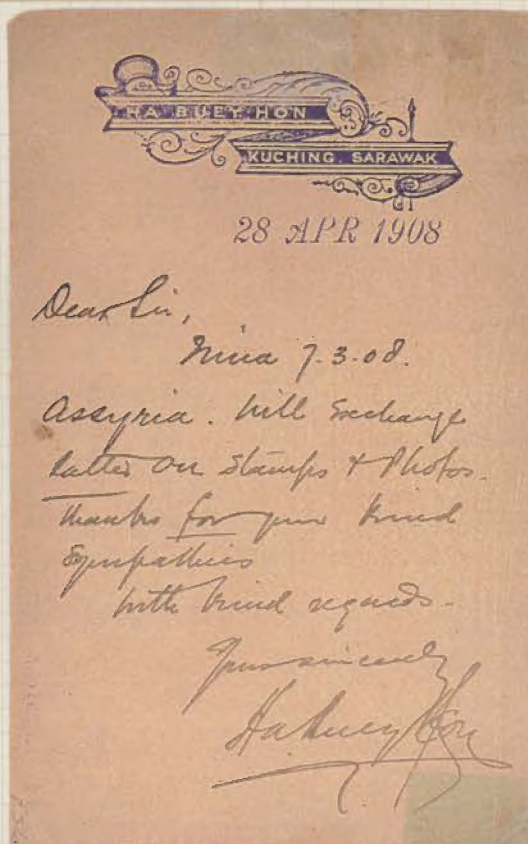 HA BUEY HON
KUCHING, SARAWAK
28 APR 1908
Dear Sir,
7.3.08.
Assyria. Will Exchange
latter on Stamps & Photos.
Thanks for your kind
Sympathies
With kind regards.
Yours sincerely
Ha Buey Hon